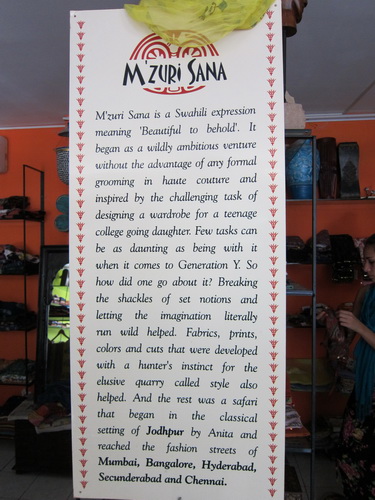 M'ZURI SANA
M'zuri Sana is a Swahili expression
meaning 'Beautiful to behold'. It
began as a wildly ambitious venture
without the advantage of any formal
grooming in haute couture and
inspired by the challenging task of
designing a wardrobe for a teenage
college going daughter. Few tasks can
be as daunting as being with it
when it comes to Generation Y. So
how did one go about it? Breaking
the shackles of set notions and
letting the imagination literally
run wild helped. Fabrics, prints,
colors and cuts that were developed
with a hunter's instinct for the
elusive quarry called style also
helped. And the rest was a safari
that began in the classical
setting of Jodhpur by Anita and
reached the fashion streets of
Mumbai, Bangalore, Hyderabad,
Secunderabad and Chennai.